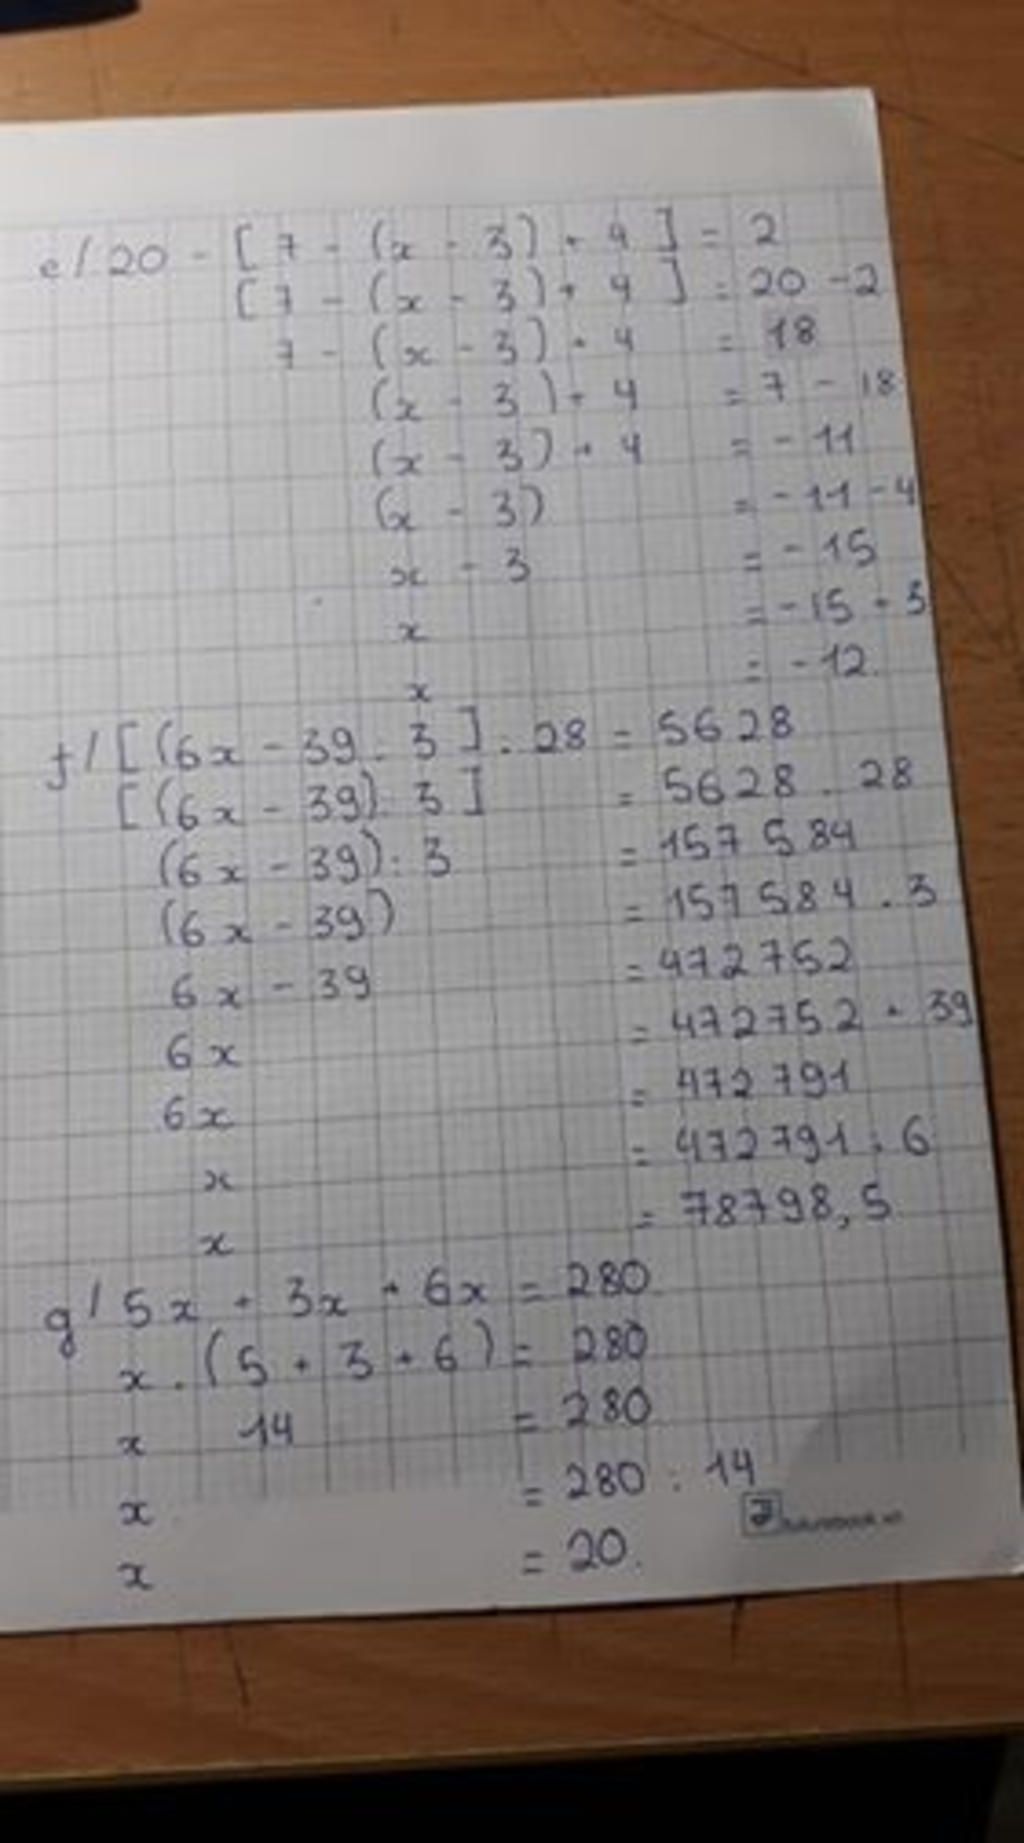 e/ 20 - [ 7 - (x - 3) + 4 ] = 2
[ 7 - (x - 3) + 4 ] = 20 - 2
7 - (x - 3) + 4 = 18
(x - 3) + 4 = 7 - 18
(x - 3) + 4 = - 11
(x - 3) = - 11 - 4
x - 3 = - 15
x = - 15 + 3
x = - 12.
f/ [(6x - 39 : 3 ] . 28 = 5628
[(6x - 39) : 3 ] = 5628 . 28
(6x - 39) : 3 = 157 584
(6x - 39) = 157 584 . 3
6x - 39 = 472752
6x = 472752 + 39
6x = 472 791
x = 472 791 : 6
x = 78798,5
g/ 5x + 3x + 6x = 280.
x . (5 + 3 + 6) = 280
x 14 = 280
x = 280 : 14
x = 20.